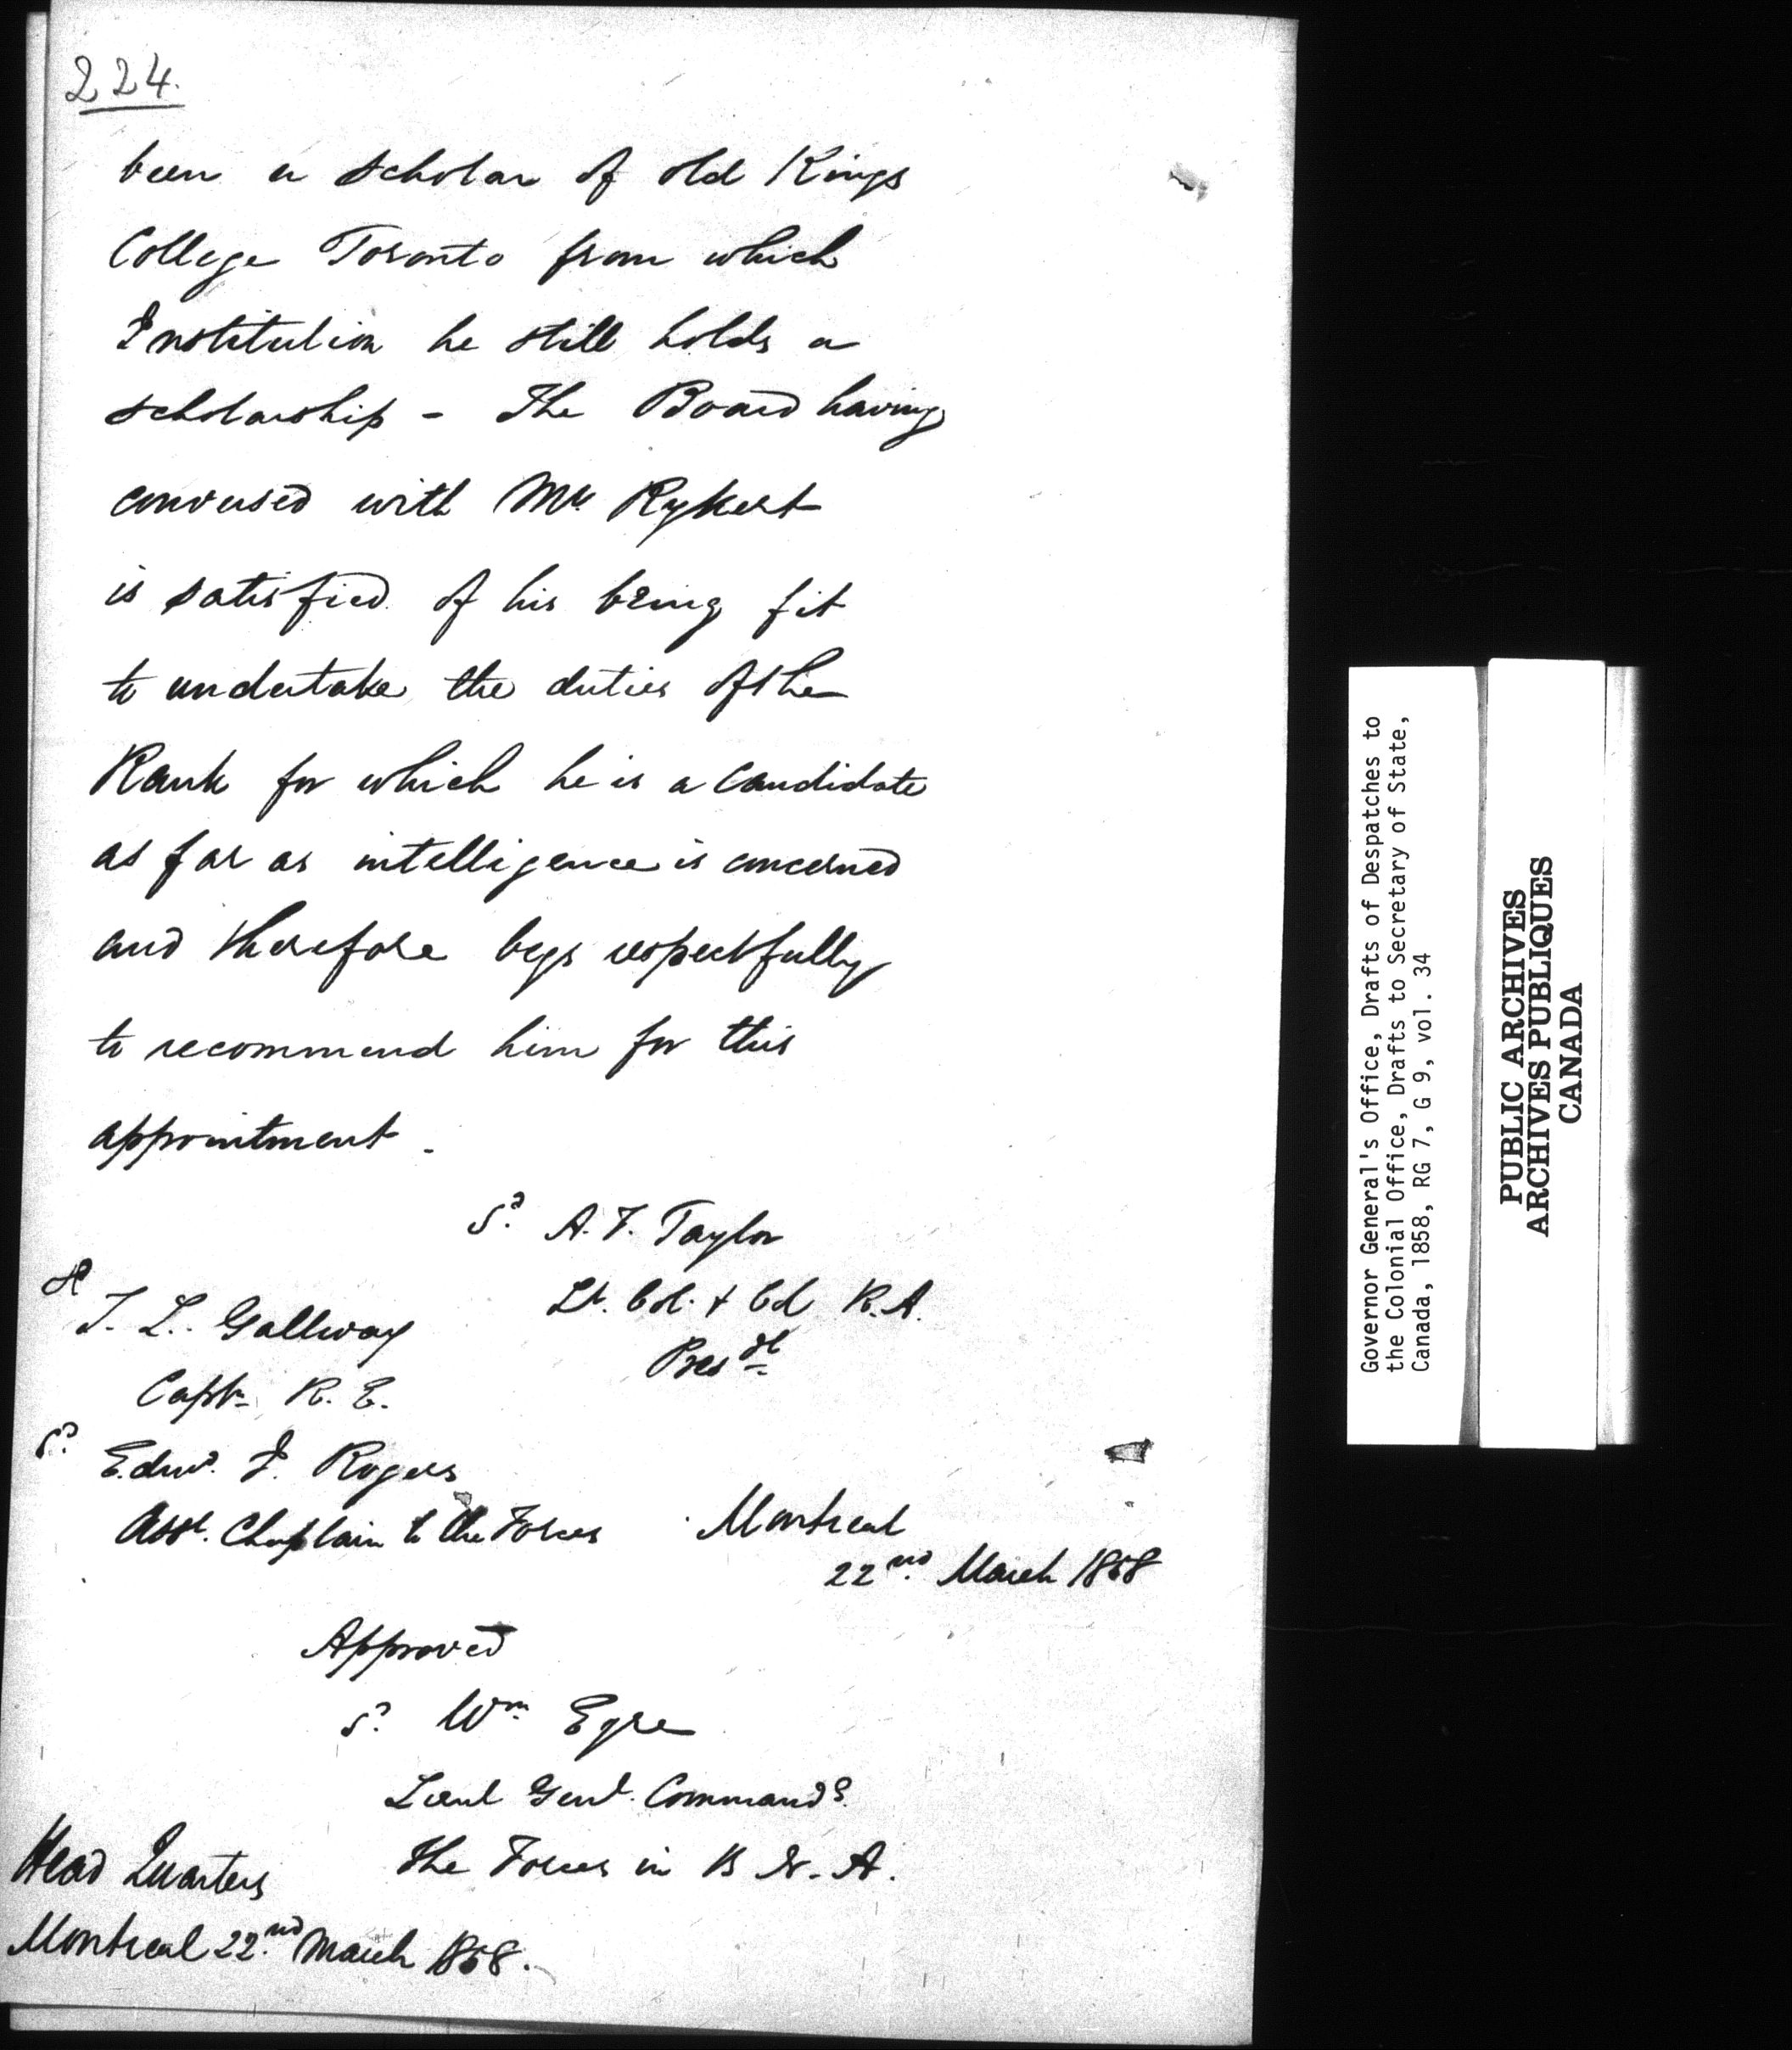 224.
been a scholar of old Kings
College Toronto from which
Institution he still holds a
scholarship - The Board having
conversed with Mr. Rykert
is satisfied of his being fit
to undertake the duties of the
Rank for which he is a candidate
as far as intelligence is concerned
and therefore begs respectfully
to recommend him for this
appointment -
Sd. A. F. Taylor
Lt. Col. & Col R.A.
Presdt
T. L. Gallwey
Captn. R. E.
Sd. Edwd. J. Rogers
Asst. Chaplain to the Forces
Montreal
22nd. March 1858
Approved
Sd. Wm. Eyre
Lieut Genl. Commandg.
the Forces in B N. A.
Head Quarters
Montreal 22nd. March 1858.
Governor General's Office, Drafts of Despatches to
the Colonial Office, Drafts to Secretary of State,
Canada, 1858, RG 7, G 9, vol. 34
PUBLIC ARCHIVES
ARCHIVES PUBLIQUES
CANADA